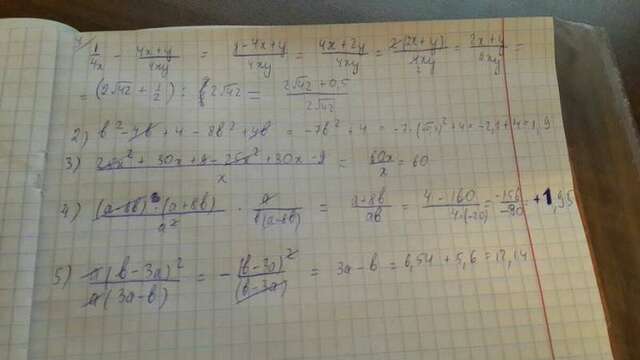 1) 1/4x - 4x+y/4xy = y-4x+y/4xy = 4x+2y/4xy = 2(2x+y)/4xy = 2x+y/2xy =
= (2√42 + 1/2) : 2√42 = 2√42 + 0,5/2√42
2) b² - 4b + 4 - 8b² + 4b = -7b² + 4 = -7·()² + 4 = -2,1 + 4 = 1,9
3) 25x² + 30x + 9 - 25x² + 30x - 9/x = 60x/x = 60
4) (a-8b)·(a+8b)/a² · a/b(a-8b) = a+8b/ab = 4-160/4·(-20) = -156/-80 + 1,95
5) (b-3a)²/a(3a-b) = - (b-3a)²/(b-3a) = 3a-b = 6,54 + 5,6 = 12,14